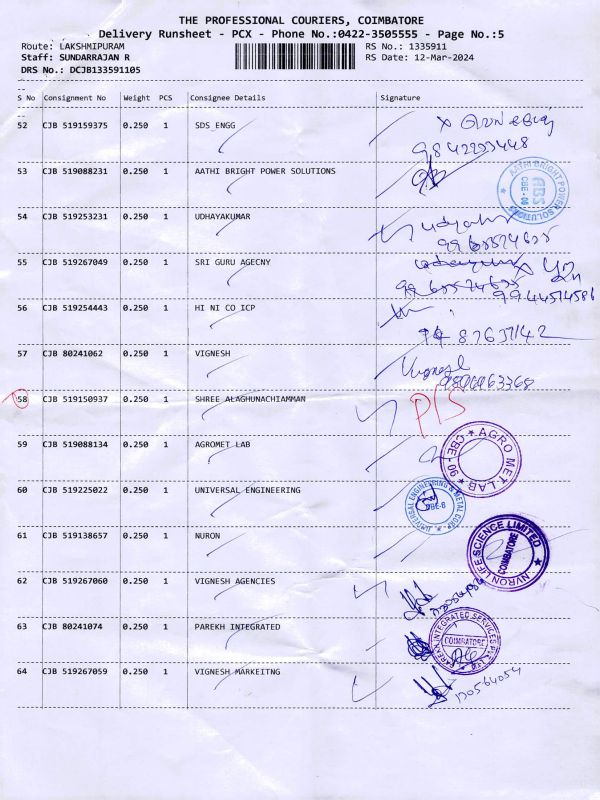 THE PROFESSIONAL COURIERS, COIMBATORE
Delivery Runsheet - PCX - Phone No.:0422-3505555 - Page No.:5
Route: LAKSHMIPURAM RS No.: 1335911
Staff: SUNDARRAJAN R RS Date: 12-Mar-2024
DRS No.: DCJB133591105
S No Consignment No Weight PCS Consignee Details Signature
52 CJB 519159375 0.250 1 SDS_ENGG
9842293448
53 CJB 519088231 0.250 1 AATHI BRIGHT POWER SOLUTIONS
AATHI BRIGHT POWER SOLUTIONS ABS CBE-06
54 CJB 519253231 0.250 1 UDHAYAKUMAR
55 CJB 519267049 0.250 1 SRI GURU AGECNY
9944514586
56 CJB 519254443 0.250 1 HI NI CO ICP
57 CJB 80241062 0.250 1 VIGNESH
Vignesh
58 CJB 519150937 0.250 1 SHREE ALAGHUNACHIAMMAN
59 CJB 519088134 0.250 1 AGROMET LAB
AGRO MET LAB CBE-06
60 CJB 519225022 0.250 1 UNIVERSAL ENGINEERING
UNIVERSAL ENGINEERING & METAL CORP CBE-6
61 CJB 519138657 0.250 1 NURON
COIMBATORE
62 CJB 519267060 0.250 1 VIGNESH AGENCIES
63 CJB 80241074 0.250 1 PAREKH INTEGRATED
PAREKH INTEGRATED SERVICES PVT LTD COIMBATORE
64 CJB 519267059 0.250 1 VIGNESH MARKEITNG